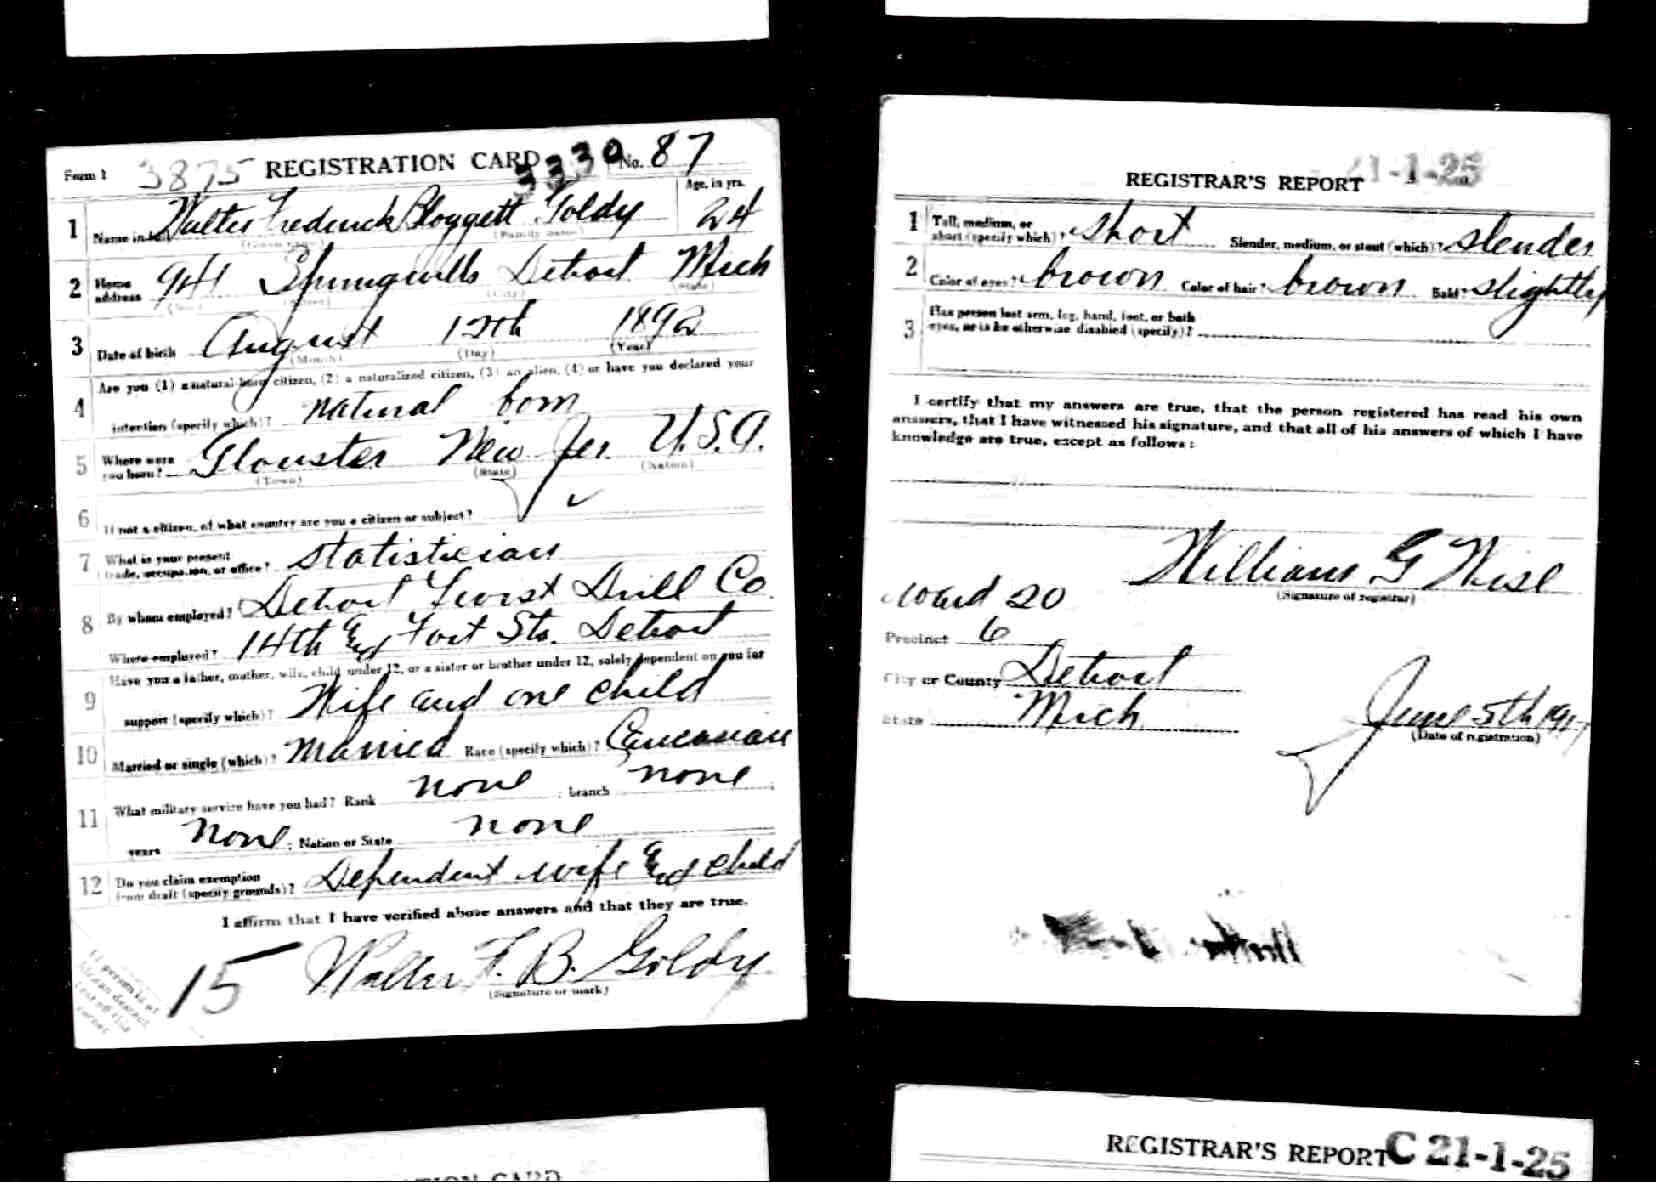 Form 1 3875 REGISTRATION CARD 3330 No. 87
1 Name in full Walter Frederick Bloggett Goldy Age, in yrs. 24
(Given name) (Family name)
2 Home address 941 Springwells Detroit Mich
(No.) (Street) (City) (State)
3 Date of birth August 12th 1892
(Month) (Day) (Year)
Are you (1) a natural-born citizen, (2) a naturalized citizen, (3) an alien, (4) or have you declared your
4 intention (specify which)? natural born
5 Where were you born? Glouster New Jer U.S.A.
(Town) (State) (Nation)
6 If not a citizen, of what country are you a citizen or subject?
7 What is your present trade, occupation, or office? statistician
8 By whom employed? Detroit Twist Drill Co.
Where employed? 14th & Fort Sts. Detroit
9 Have you a father, mother, wife, child under 12, or a sister or brother under 12, solely dependent on you for
support (specify which)? Wife and one child
10 Married or single (which)? Married Race (specify which)? Caucasian
11 What military service have you had? Rank none ; branch none ;
years none ; Nation or State none
12 Do you claim exemption from draft (specify grounds)? Dependent wife & child
I affirm that I have verified above answers and that they are true.
15 Walter F. B. Goldy
(Signature or mark)
If person is of African descent, tear off this corner
21-1-25
REGISTRAR'S REPORT
1 Tall, medium, or short (specify which)? short Slender, medium, or stout (which)? slender
2 Color of eyes? brown Color of hair? brown Bald? slightly
3 Has person lost arm, leg, hand, foot, or both
eyes, or is he otherwise disabled (specify)?
I certify that my answers are true, that the person registered has read his own
answers, that I have witnessed his signature, and that all of his answers of which I have
knowledge are true, except as follows:
William G Wise
(Signature of registrar)
Ward 20
Precinct 6
City or County Detroit
State Mich
June 5th 1917
(Date of registration)
REGISTRAR'S REPORT C 21-1-25